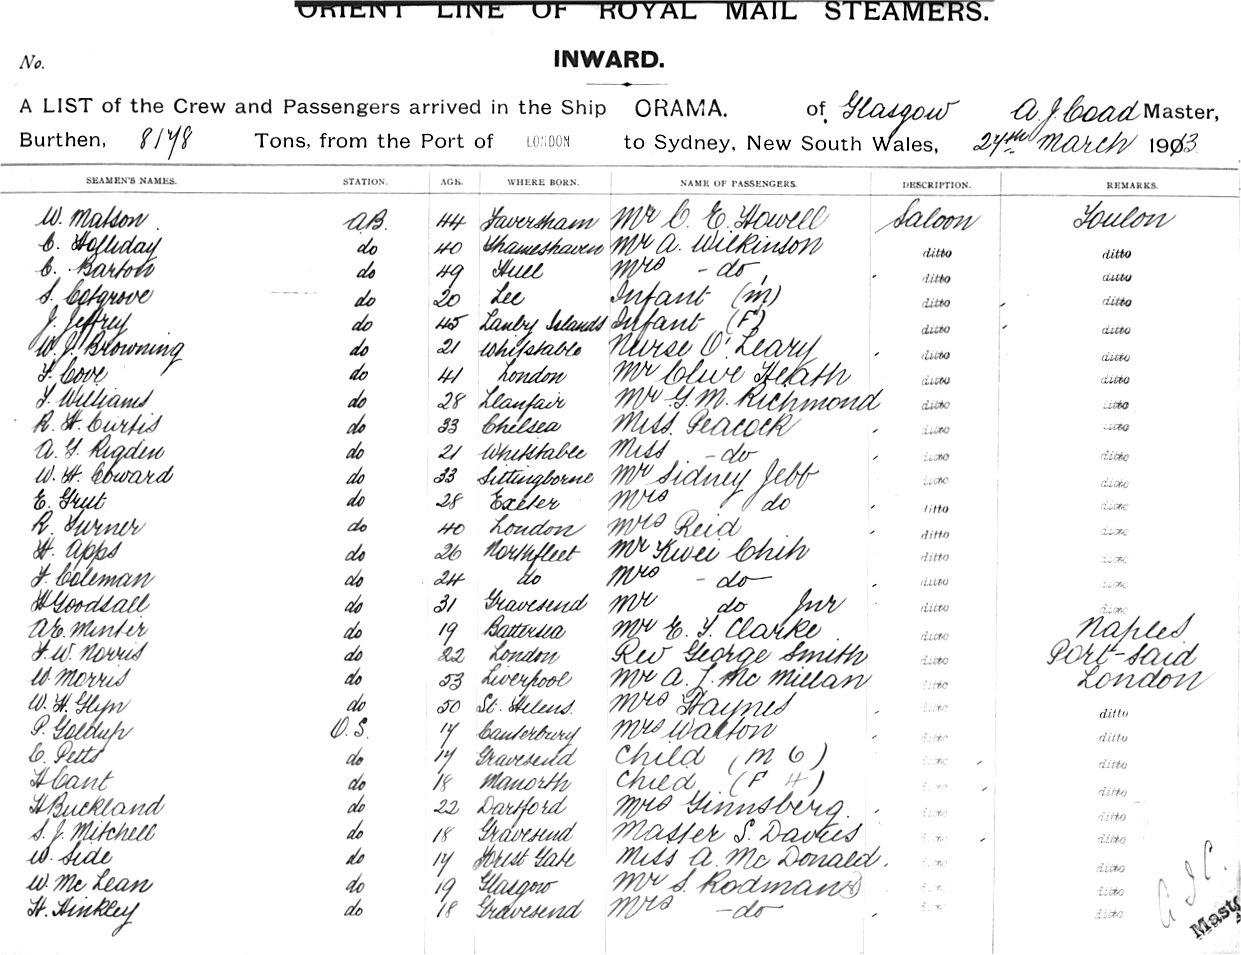 ORIENT LINE OF ROYAL MAIL STEAMERS.
No. INWARD.
A LIST of the Crew and Passengers arrived in the Ship ORAMA. of Glasgow A. J. Coad Master,
Burthen, 8178 Tons, from the Port of LONDON to Sydney, New South Wales, 27th March 1913
SEAMEN'S NAMES. STATION. AGE. WHERE BORN. NAME OF PASSENGERS. DESCRIPTION. REMARKS.
W. Matson AB. 44 Faversham Mr C. E. Howell Saloon Toulon
C. Holliday do 40 Thameshaven Mr A. Wilkinson ditto ditto
C. Barton do 49 Hull Mrs - do ditto ditto
S. Cosgrove do 20 Lee Infant (m) ditto ditto
J. Jeffrey do 45 Islands Infant (F) ditto ditto
W. J. Browning do 21 Whitstable Nurse O'Leary ditto ditto
F. Cove do 41 London Mr Clive Heath ditto ditto
F. Williams do 28 Llanfair Mr G. M. Richmond ditto ditto
R. H. Curtis do 33 Chelsea Miss Peacock ditto ditto
A. G. Rigden do 21 Whitstable Miss - do ditto ditto
W. H. Coward do 33 Sittingborne Mr Sidney Jebb ditto ditto
E. Grut do 28 Exeter Mrs do ditto ditto
R. Turner do 40 London Mrs Reid ditto ditto
H. Apps do 26 Northfleet Mr Kwei Chih ditto ditto
F. Coleman do 24 do Mrs - do ditto ditto
H Goodsall do 31 Gravesend Mr do Jnr ditto ditto
A E. Minter do 19 Battersea Mr E. F. Clarke ditto Naples
F. W. Norris do 22 London Rev George Smith ditto Port-Said
W. Morris do 53 Liverpool Mr A. J. Mc Millan ditto London
W. H. Glyn do 50 St. Helens. Mrs Haynes ditto ditto
P. Goldup O.S. 17 Canterbury Mrs Walton ditto ditto
C. Petts do 17 Gravesend Child (M 6) ditto ditto
H Cant do 18 Child (F 4) ditto ditto
H Buckland do 22 Dartford Mrs Ginnsberg. ditto ditto
S. J. Mitchell do 18 Gravesend Master S. Davies ditto ditto
W. Side do 17 Forest Gate Miss A. Mc Donald. ditto ditto
W. Mc Lean do 19 Glasgow Mr S. Rodman ditto ditto
H. Hinkley do 18 Gravesend Mrs - do ditto ditto